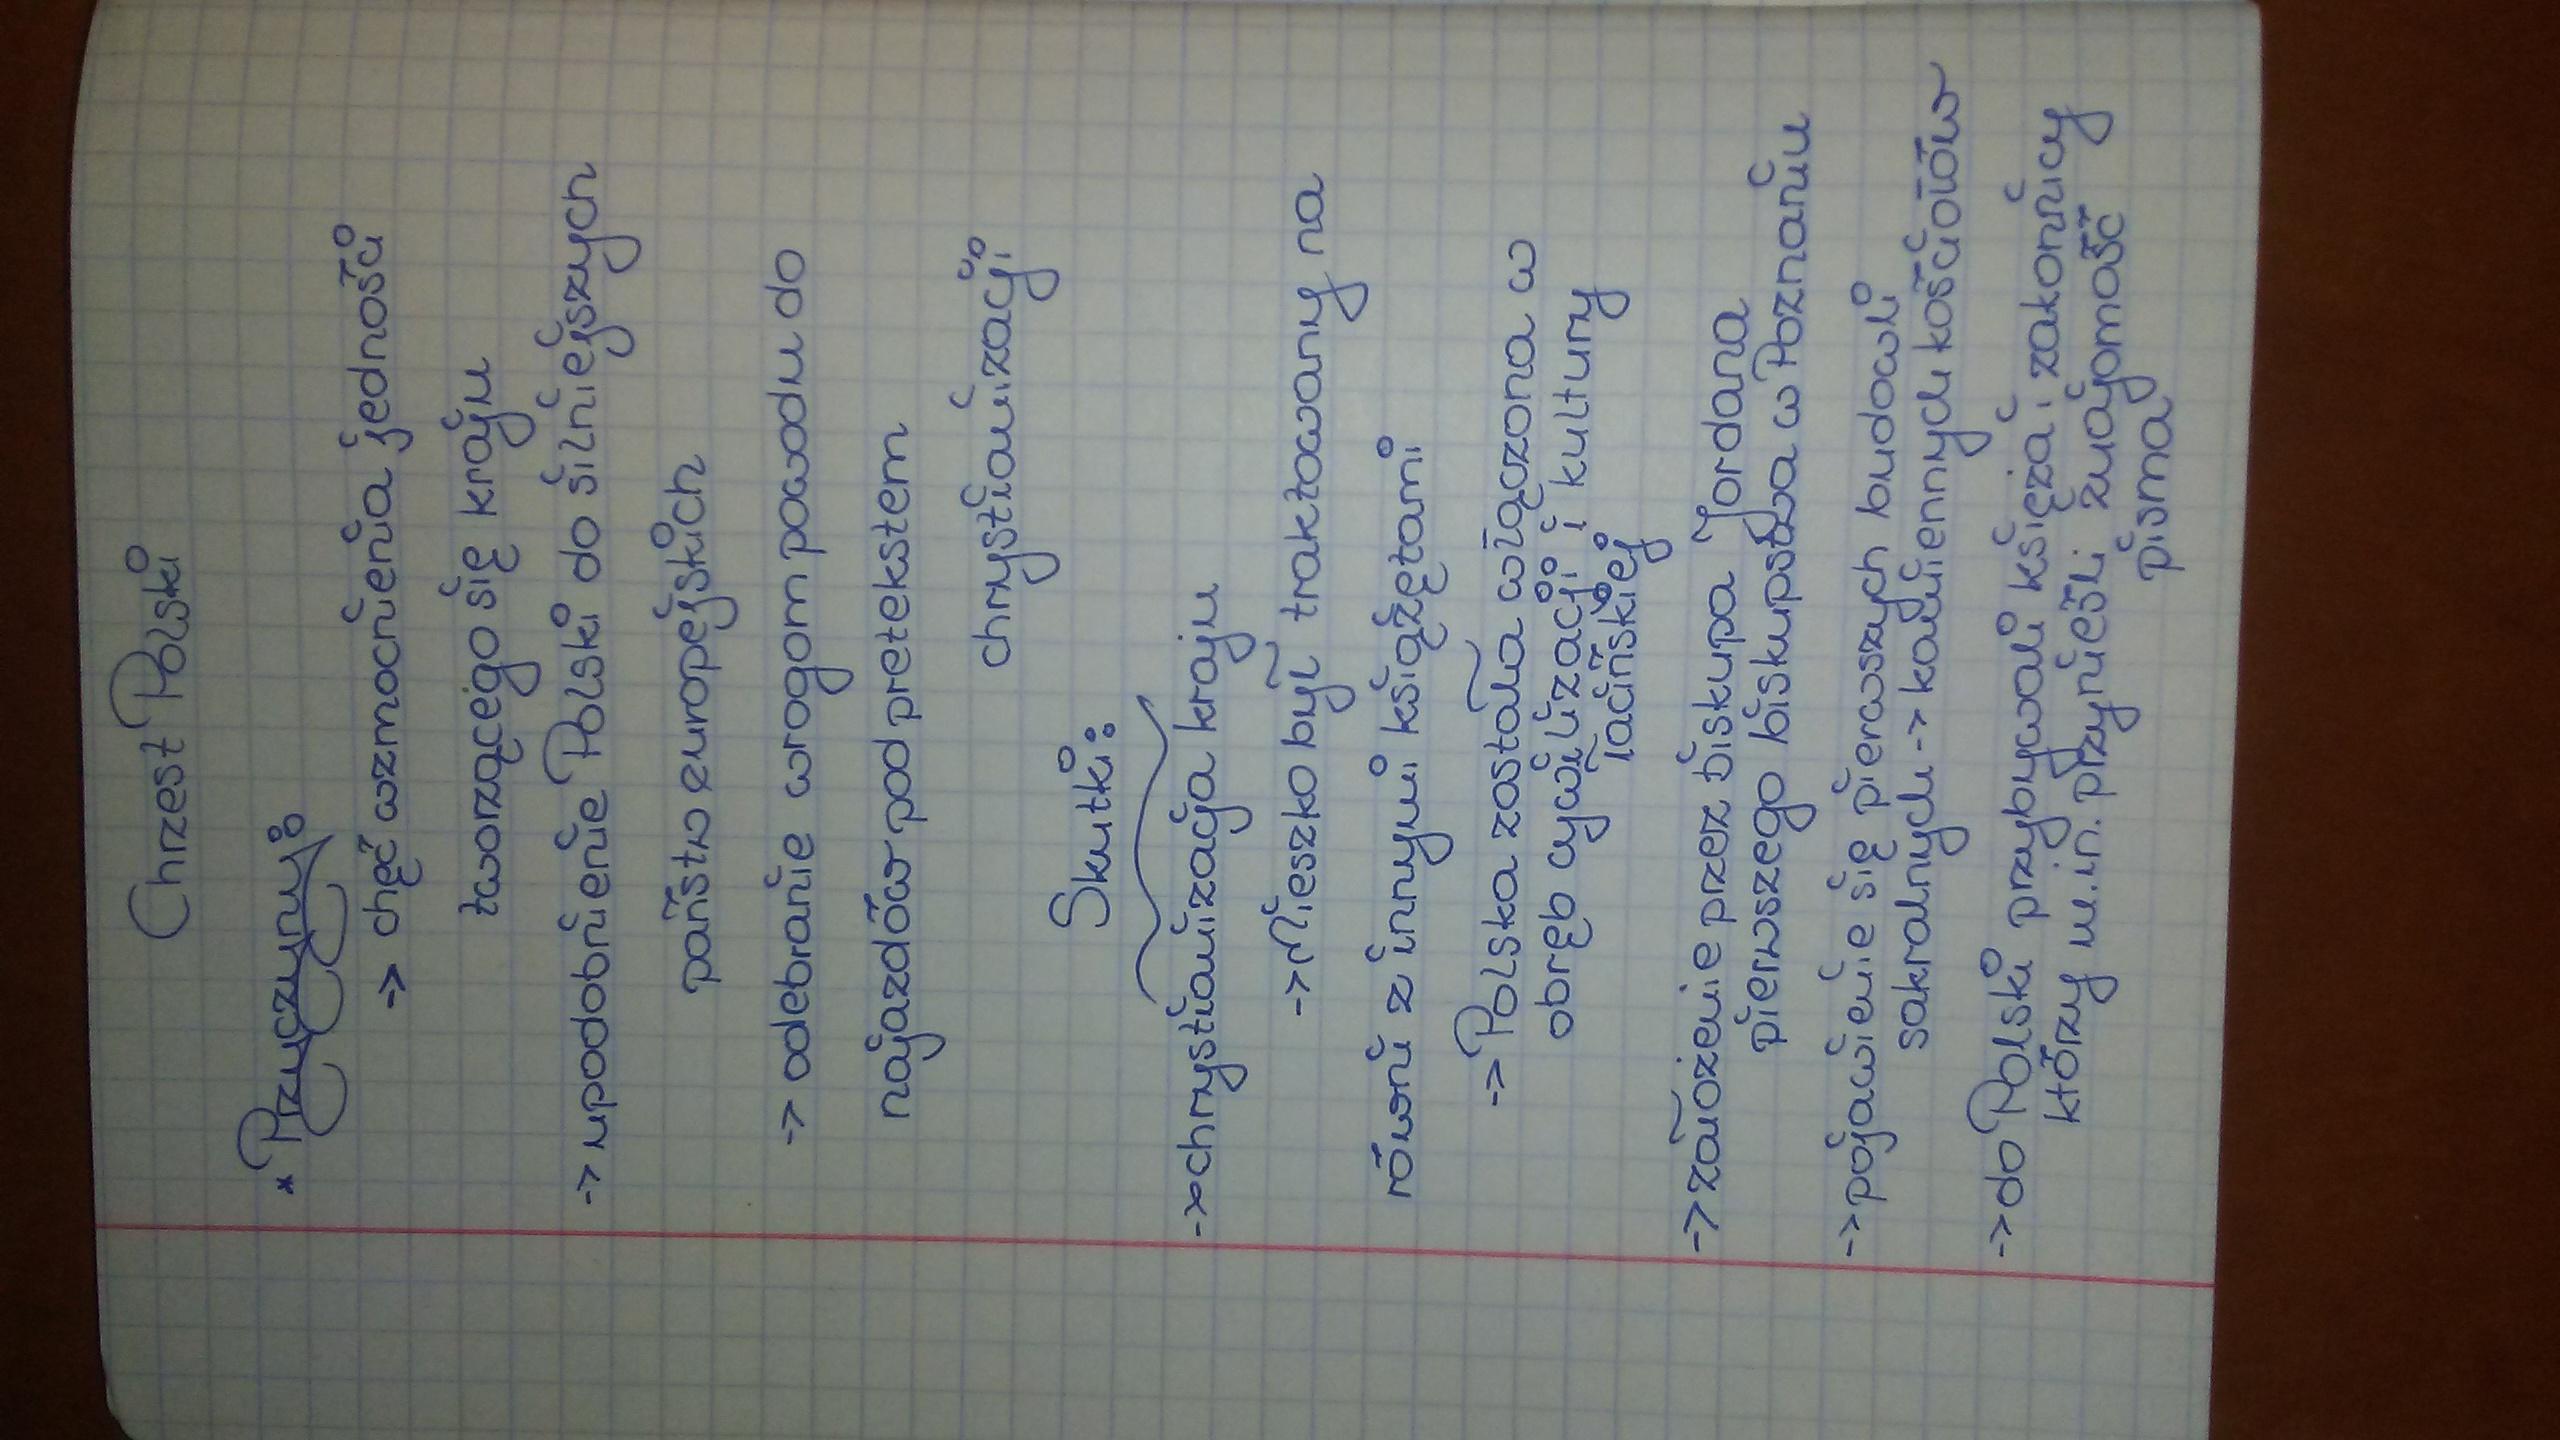 Chrzest Polski
* Przyczyny:
-> chęć wzmocnienia jedności
tworzącego się kraju
-> upodobnienie Polski do silniejszych
państw europejskich
-> odebranie wrogom powodu do
najazdów pod pretekstem
chrystianizacji
Skutki:
-> chrystianizacja kraju
-> Mieszko był traktowany na
równi z innymi książętami
-> Polska została włączona w
obręb cywilizacji i kultury
łacińskiej
-> założenie przez biskupa Jordana
pierwszego biskupstwa w Poznaniu
-> pojawienie się pierwszych budowli
sakralnych -> kamiennych kościołów
-> do Polski przybywali księża i zakonnicy
którzy m.in. przynieśli znajomość
pisma